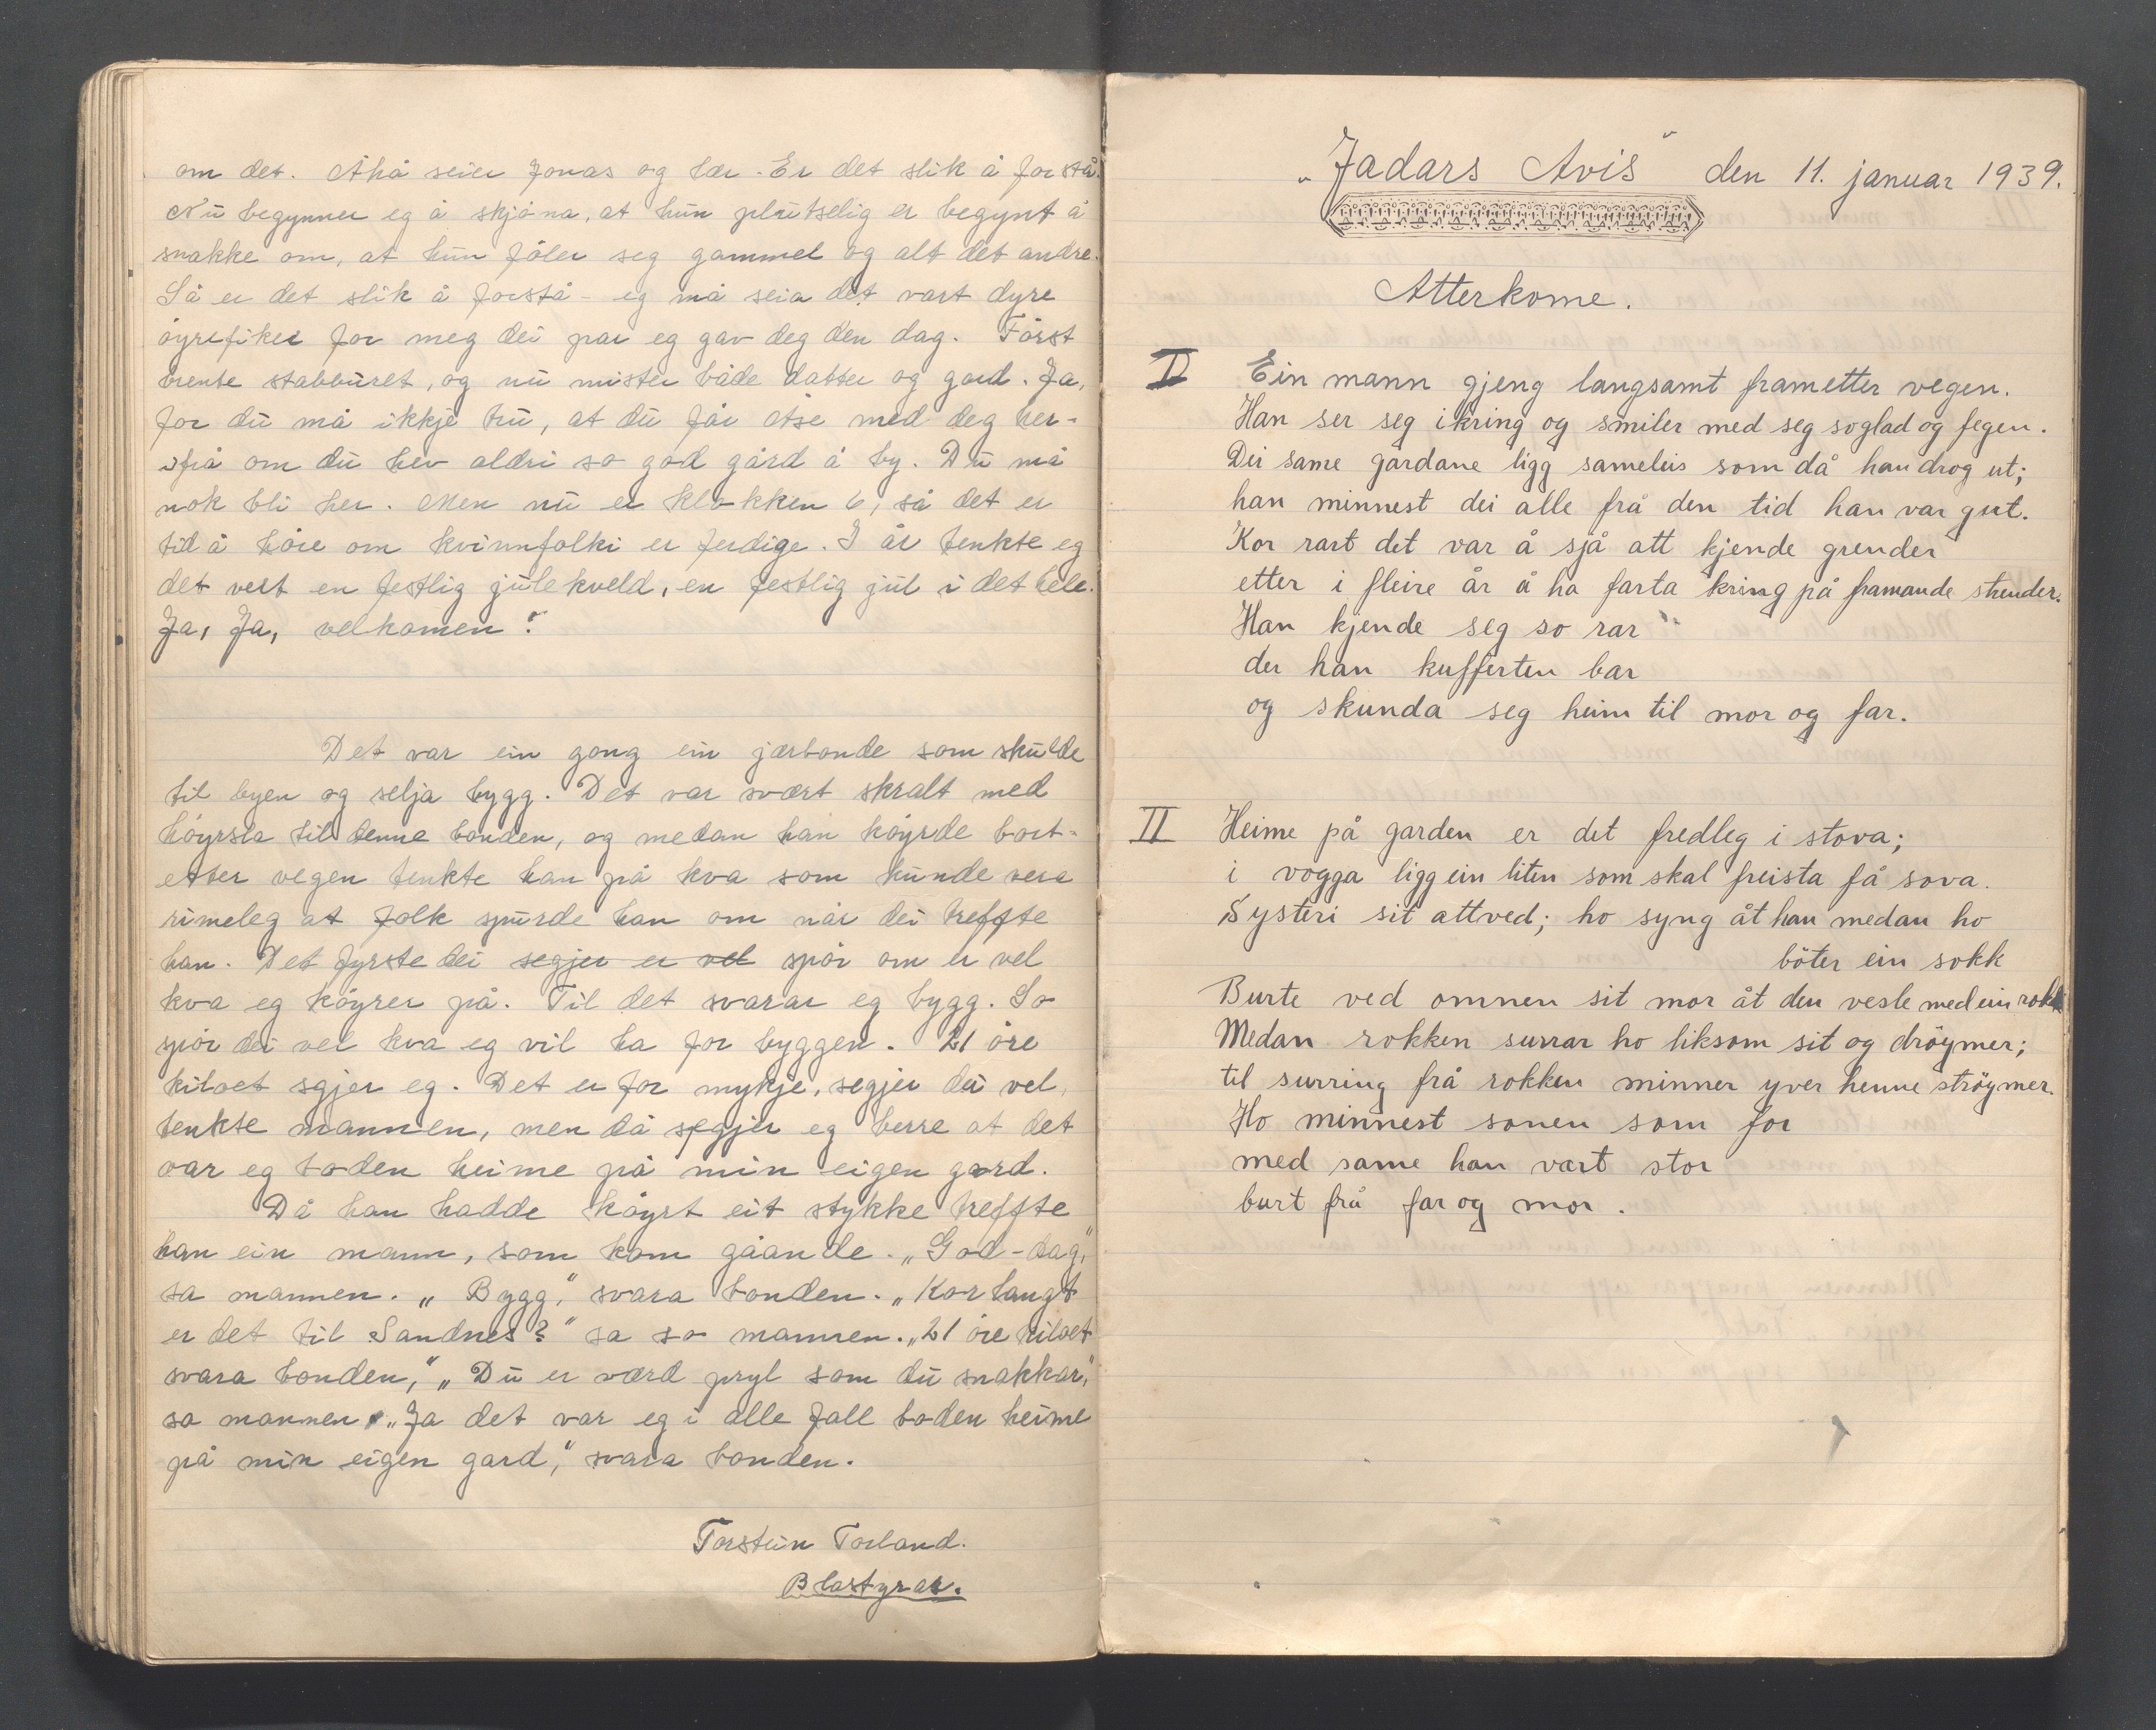 om det. Åhå seier Jonas og lær. Er det slik å forstå.
Nu begynner eg å skjöna, at hun plutselig er begynt å
snakke om, at hun föler seg gammel og alt det andre.
Så er det slik å forstå - eg må seia det vart dyre
öyrefiker for meg dei par eg gav deg den dag. Först
brente stabburet, og nu mister både datter og gard. Ja,
for du må ikkje tru, at du får Åse med deg her-
ifrå om du hev aldri so god gård å by. Du må
nok bli her. Men nu er klokken 6, så det er
tid å höre om kvinnfolki er ferdige. I år tenkte eg
det vert en festlig julekveld, en festlig jul i det hele.
Ja, Ja, velkomen!
Det var ein gong ein jærbonde som skulde
til byen og selja bygg. Det var svært skralt med
höyrsla til denne bonden, og medan han köyrde bort-
etter vegen tenkte han på kva som kunde vera
rimeleg at folk spurde han om når dei treffte
han. Det fyrste dei segjer er vel spör om er vel
kva eg köyrer på. Til det svarar eg bygg. So
spör dei vel kva eg vil ha for byggen. 21 öre
kiloet sgjer eg. Det er for mykje, segjer du vel,
tenkte mannen, men då segjer eg berre at det
var eg boden heime på min eigen gard.
Då han hadde köyrt eit stykke treffte
han ein mann, som kom gåande. „God-dag,"
sa mannen. „Bygg," svara bonden. „Kor langt
er det til Sandnes?" sa so mannen. „21 öre kiloet
svara bonden," „Du er værd pryl som du snakkar,"
sa mannen. „Ja det var eg i alle fall boden heime
på min eigen gard," svara bonden.
Torstein Torland.
Blastyrar.
„Jadars Avis" den 11. januar 1939.
Atterkome.
I Ein mann gjeng langsamt frametter vegen.
Han ser seg ikring og smiler med seg so glad og fegen.
Dei same gardane ligg sameleis som då han drog ut;
han minnest dei alle frå den tid han var gut.
Kor rart det var å sjå att kjende grender
etter i fleire år å ha farta kring på framande strender.
Han kjende seg so rar
der han kufferten bar
og skunda seg heim til mor og far.
II Heime på garden er det fredleg i stova;
i vogga ligg ein liten som skal freista få sova.
Systeri sit attved; ho syng åt han medan ho
böter ein sokk
Burte ved omnen sit mor åt den vesle med ein rokk
Medan rokken surrar ho liksom sit og dröymer;
til surring frå rokken minner yver henne ströymer.
Ho minnest sonen som for
med same han vart stor
burt frå far og mor.